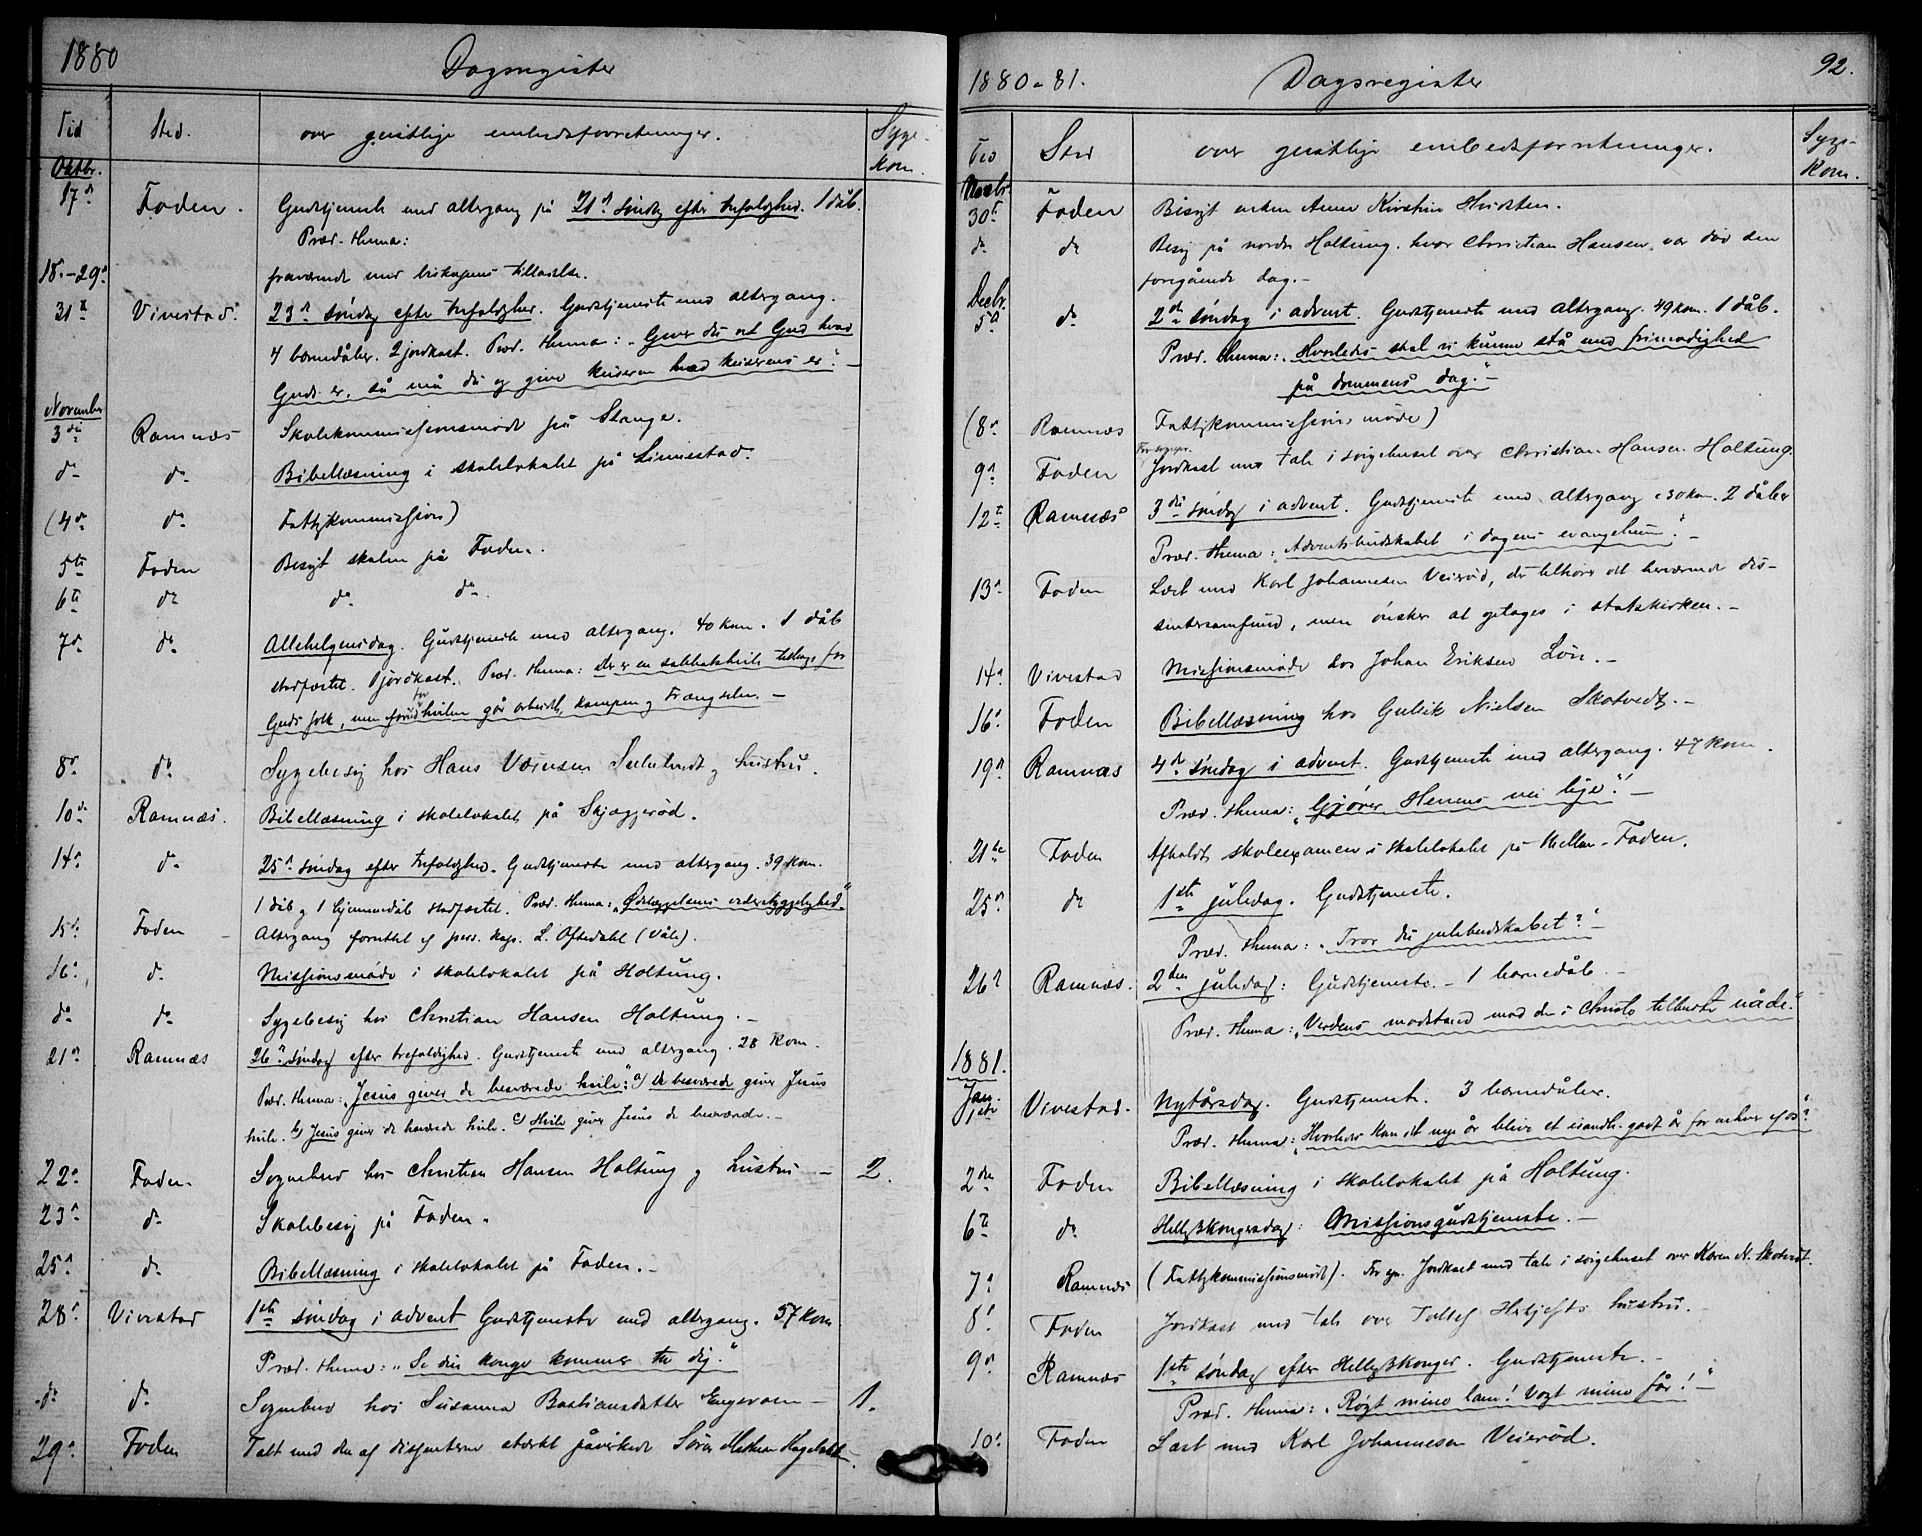 1880
Dagsregister
Tid Sted. over geistlige embedsforretninger. Syge-
Oktbr. Kom.
17de Foden. Gudstjeneste med altergang på 21de søndag efter trefoldighed. 1 dåb.
Præd. thema:
18.-29de fraværende med biskopens tilladelse.
31te Vivestad. 23de søndag efter trefoldighed. Gudstjeneste med altergang.
4 barnedåber. 2 jordkast. Præd. thema: „Giver du Gud hvad
Guds er, så må du og give keiseren hvad keiserens er".
November
3die Ramnæs Skolekommissionsmøde på Stange.
do do Bibellæsning i skolelokalet på Linnestad.
(4de do Fattigkommission)
5te Foden Besøgt skolen på Foden.
6te do do do.
7de do Allehelgensdag. Gudstjeneste med altergang. 40 kom. 1 dåb
stadfæstet. Jordkast. Præd. thema: Der er en sabbatshvile tilbage for
Guds folk, men forud for hvilen går arbeidet, kampen og Trængselen. -
8de do Sygebesøg hos Hans hustru.
10de Ramnæs. Bibellæsning i skolelokalet på Skjæggerød.
14de do 25de søndag efter trefoldighed. Gudstjeneste med altergang. 39 kom.
1 dåb og 1 hjemmedåb stadfæstet. Præd. thema: „Ødelæggelsens vederstyggelighed"
15de Foden Altergang forrettet af pers. kap. L. Oftedahl (Våle).
16de do Missionsmøde i skolelokalet på Holtung.
do do Sygebesøg hos Christian Hansen Holtung. -
21de Ramnæs 26de søndag efter trefoldighed. Gudstjeneste med altergang. 28 Kom.
Præd. thema: „Jesus giver de besværede hvile": a) De besværede giver Jesus
hvile. b) Jesus giver de besværede hvile. c) Hvile giver Jesus de besværede. -
22de Foden. Sognebud hos Christian Hansen Holtung og hustru - 2.
23de do Skolebesøg på Foden.
25de do Bibellæsning i skolelokalet på Foden. -
28de Vivestad 1ste søndag i advent Gudstjeneste med altergang. 57 kom
Præd. thema: „Se din konge kommer til dig."
do do Sognebud hos Susanna Bastiansdatter - 1.
29de Foden Talt med den af dissenterne stærkt påvirkede Søren
92.
1880-81. Dagsregister
Tid Sted over geistlige embedsforretninger. Syge-
Kom.
Novbr.
30te Foden Besøgt enken Anne Kirstine Hvidsten.
do do Besøg på nordre Holtung, hvor Christian Hansen var død den
foregående dag. -
Decbr.
5te do 2den søndag i advent. Gudstjeneste med altergang. 49 kom. 1 dåb.
Præd. thema: „Hvorledes skal vi kunne stå med frimodighed
på dommens dag." -
(8de Ramnæs Fattigkommissionsmøde)
9de Foden Jordkast med tale i sørgehuset over Christian Hansen Holtung.
12te Ramnæs 3die søndag i advent. Gudstjeneste med altergang. 30 kom. 2 dåber
Præd. thema: „Adventsbudskabet i dagens evangelium". -
13de Foden Læst med Karl Johannesen Veierød, der tilhører det herværende dis-
sentersamfund, men ønsker at optages i statskirken. -
14de Vivestad Missionsmøde hos Johan Eriksen Lien. -
16de Foden Bibellæsning hos Gullik Nielsen Skotvedt. -
19de Ramnæs 4de søndag i advent. Gudstjeneste med altergang. 47 kom.
Præd. thema: „Gjører Herrens vei lige"! -
21de Foden Afholdt skoleexamen i skolelokalet på Mellem-Foden.
25de do 1ste juledag. Gudstjeneste.
Præd. thema: „Tror du julebudskabet?" -
26de Ramnæs. 2den juledag: Gudstjeneste. - 1 barnedåb. -
Præd. thema: „Verdens modstand mod den i Christo tilbudte nåde".
1881.
Jan.
1ste Vivestad. Nytårsdag. Gudstjeneste. 3 barnedåber.
Præd. thema: „Hvorledes kan det nye år blive et isandhed godt år for enhver af os"?
2den Foden Bibellæsning i skolelokalet på Holtung.
6te do Helligtrekongersdag: Missionsgudstjeneste. -
7de Ramnæs (Fattigkommissionsmøde). Jordkast med tale i sørgehuset over Karen N. Skotvedt.
8de Foden Jordkast med tale over hustru. -
9de Ramnæs 1ste søndag efter Helligtrekonger. Gudstjeneste. -
Præd. thema: „Røgt mine lam! Vogt mine får!" -
10de Foden Læst med Karl Johannesen Veierød.